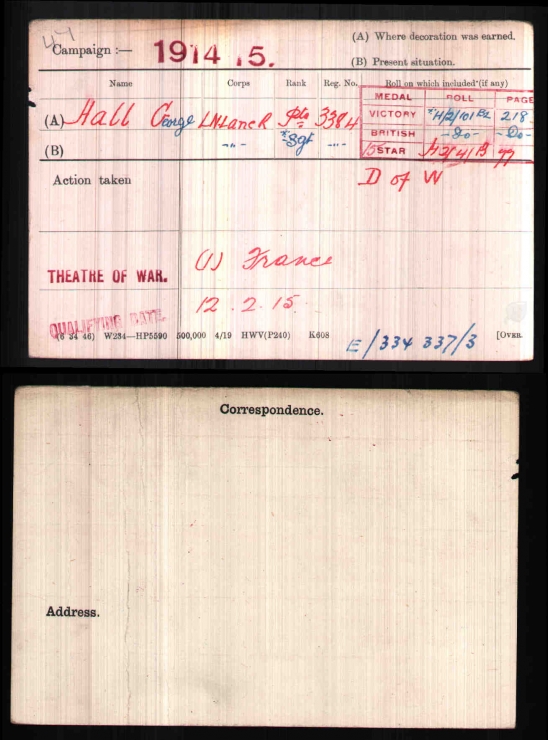 47
Campaign :— 1914 15.
(A) Where decoration was earned.
(B) Present situation.
Name Corps Rank Reg. No. Roll on which included (if any)
MEDAL ROLL PAGE
(A) Hall George L N Lanc R Pte 3384
VICTORY H/2/101 B2 218
BRITISH -do- -do-
(B) -"- *Sgt -"-
15 STAR H/2/41B 77
Action taken
D of W
THEATRE OF WAR. (1) France
QUALIFYING DATE. 12.2.15.
(6 34 46) W234—HP5590 500,000 4/19 HWV(P240) K608 [OVER.
E/334 337/3
Correspondence.
Address.